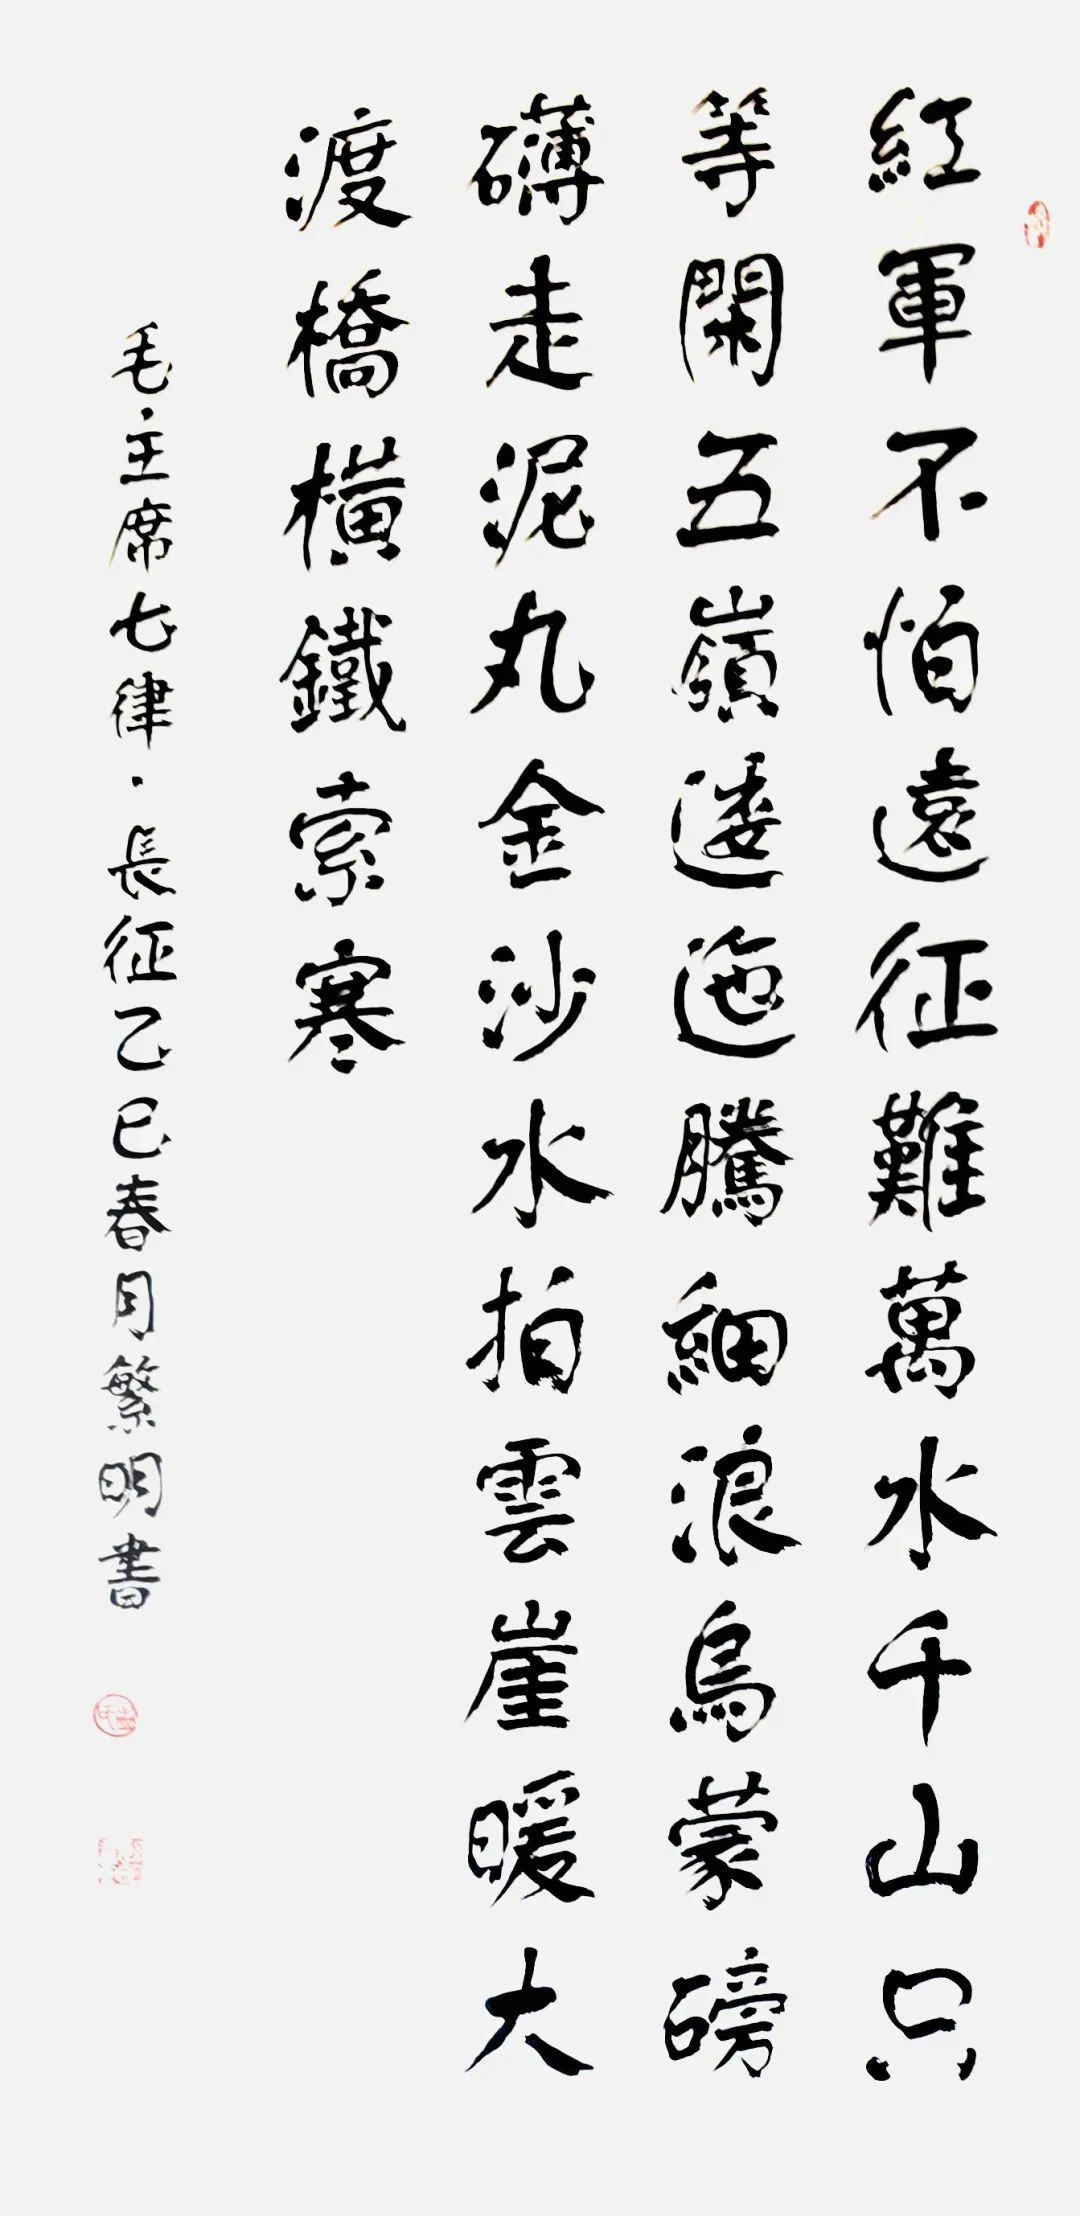 紅軍不怕遠征難萬水千山只
等閑五嶺逶迤騰細浪烏蒙磅
礴走泥丸金沙水拍雲崖暖大
渡橋橫鐵索寒
毛主席七律·長征乙巳春月繁明書